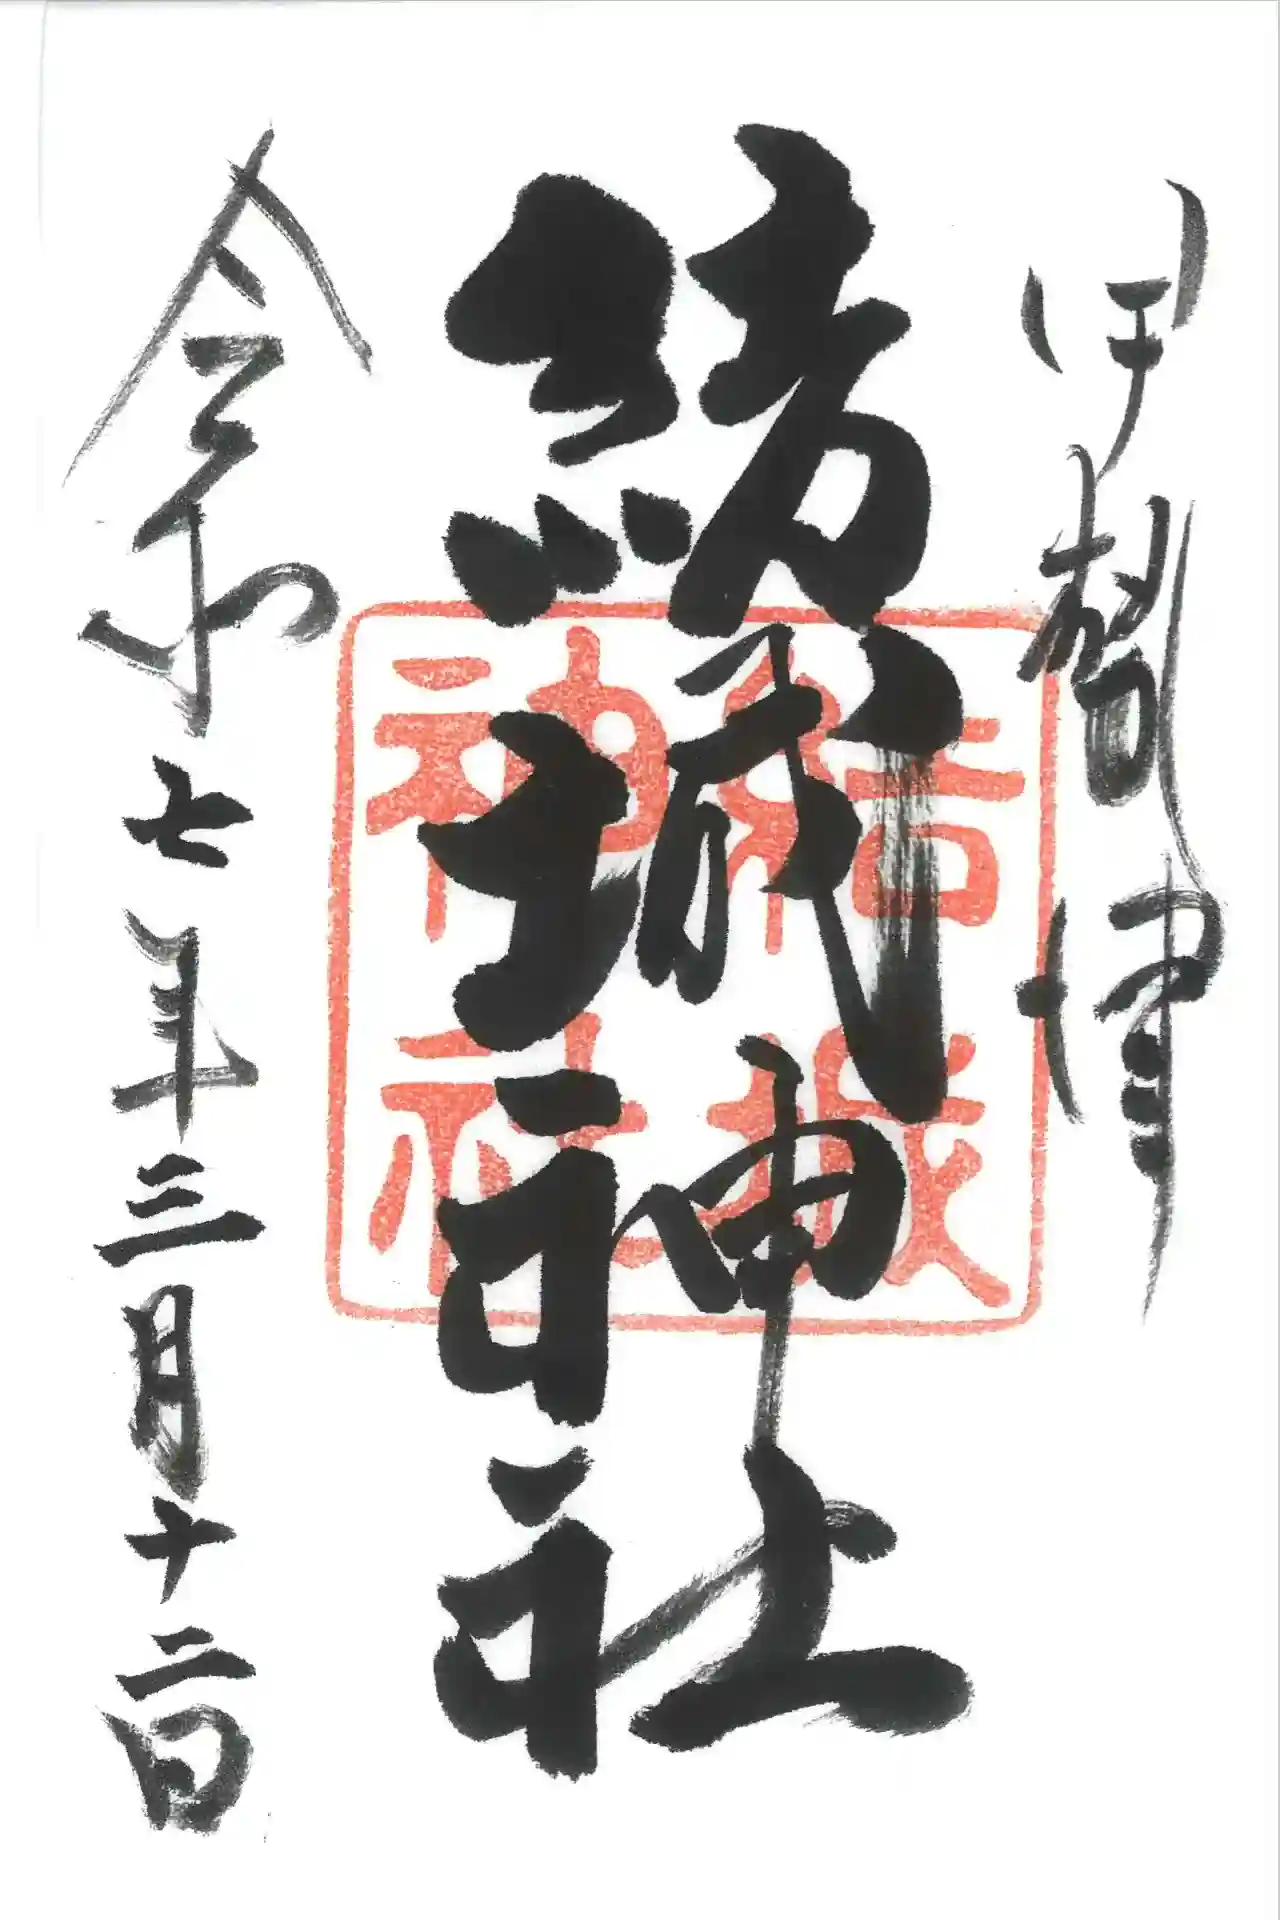 伊勢津
結城神社
結城
神社
令和七年三月十二日